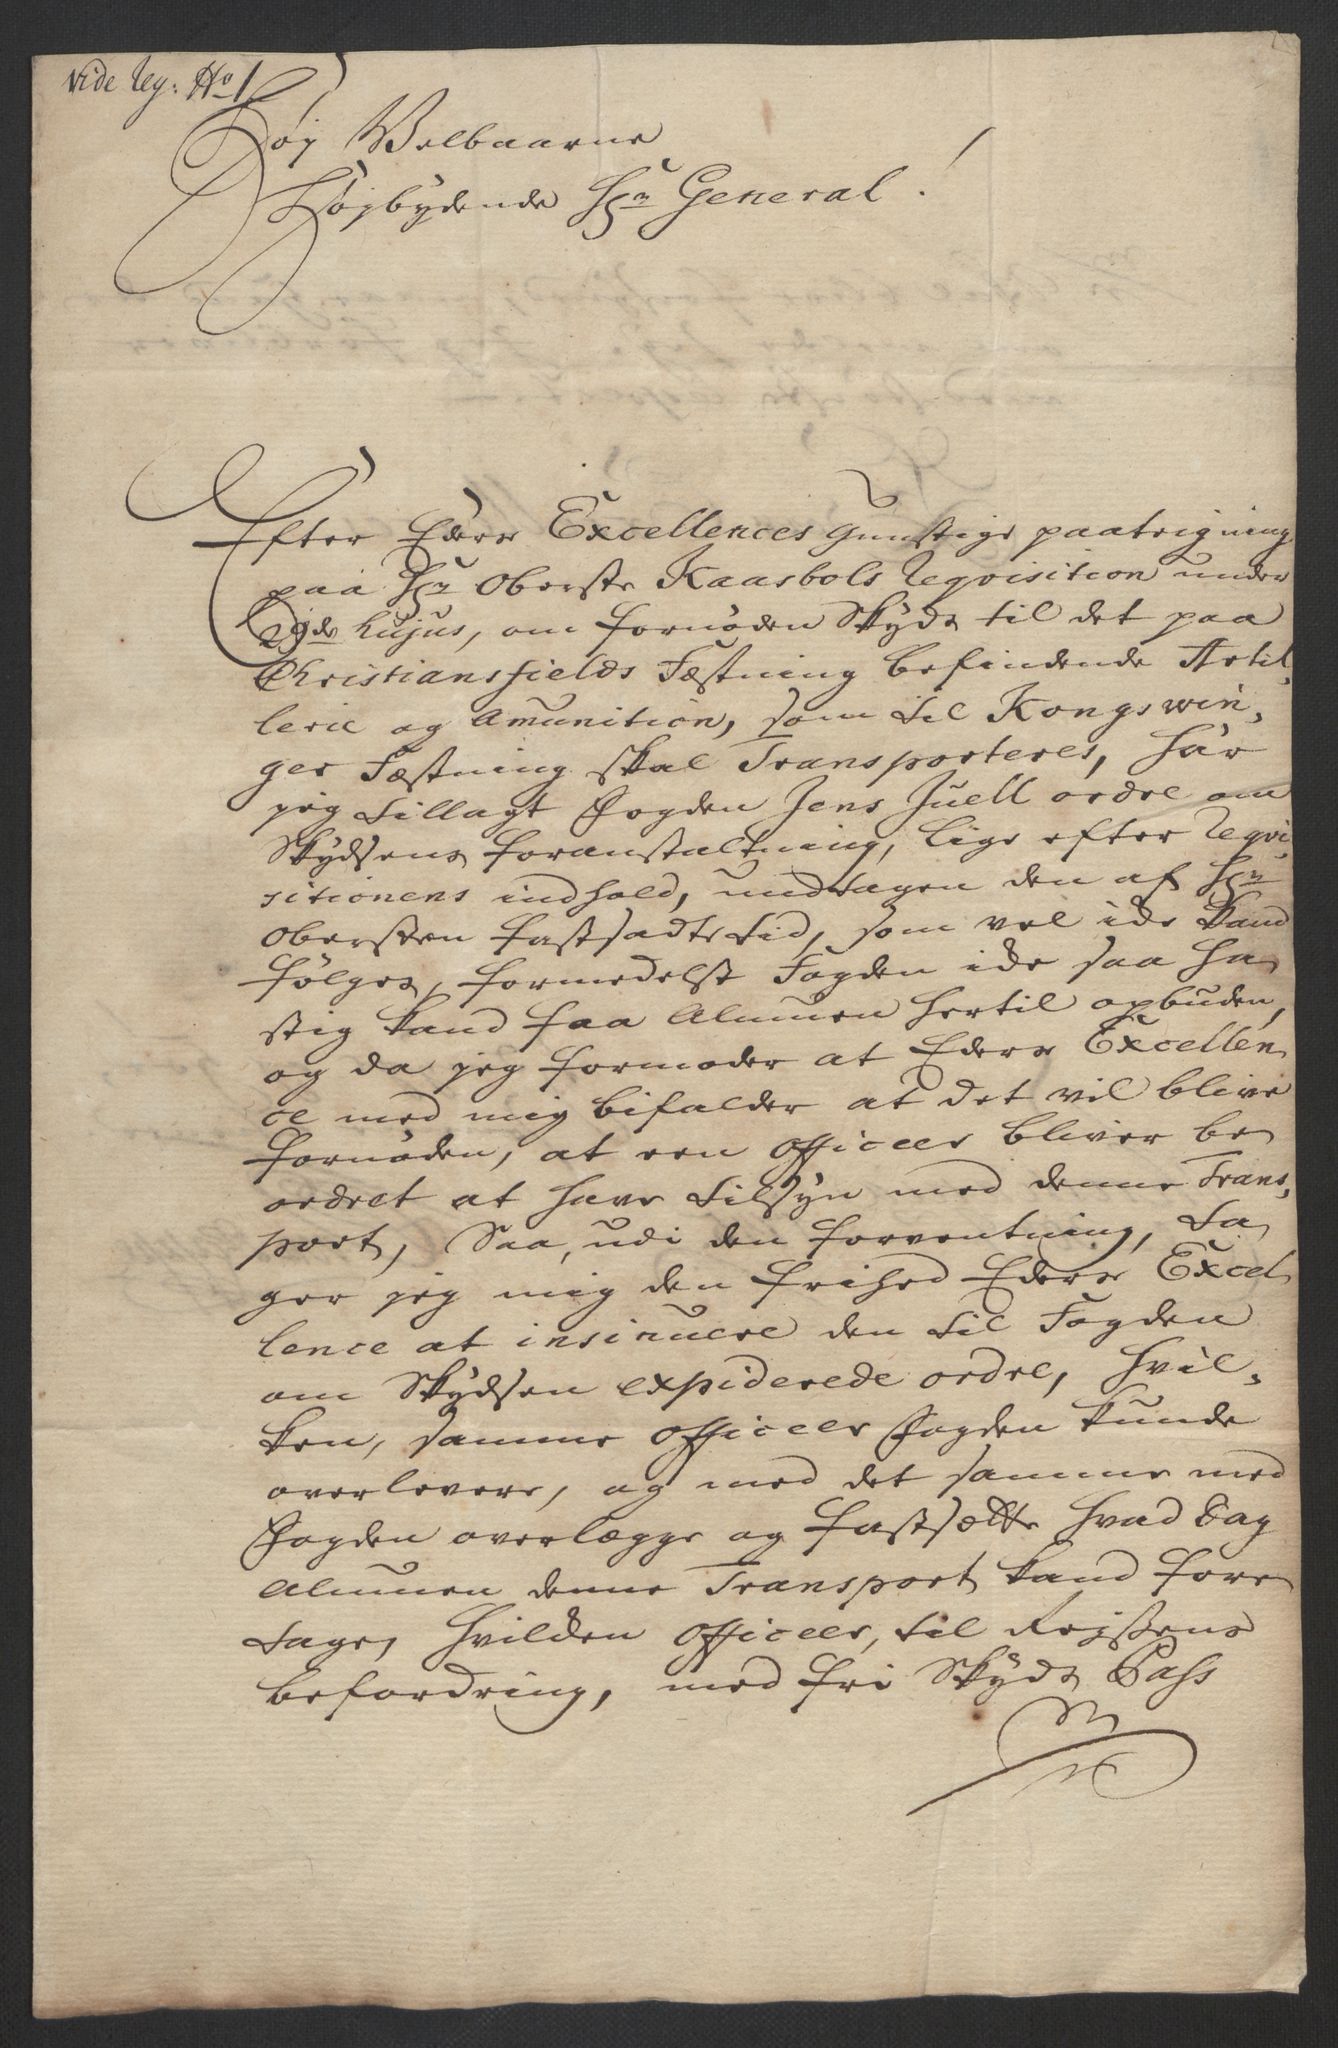 Vide Reg: No 1
Høy Velbaarne
Høybydende Hr General!
Efter Eders Excellences gunstige paateigning
paa Hr Oberste Kaasbøls Reqvisition under
29de hujus, om fornøden Skyds til det paa
Christiansfields Fæstning befindende Artil-
lerie og Amunition, som til Kongswin-
ger Fæstning skal Transporteres, har
jeg tillagt Fogden Jens Juell ordre om
Skydsens foranstaltning, lige efter Reqvi-
sitionens indhold, undtagen den af Hr
Obersten fastsadte tid, som vel icke kand
følges, formedelst Fogden icke saa ha-
stig kand faa Almuen hertil opbuden,
og da jeg formoder at Eders Excellen-
ce med mig bifalder at det vil blive
fornøden, at een Officeer bliver be-
ordret at have tilsyn med denne Trans-
port, Saa, udi den forventning, ta-
ger jeg mig den frihed Eders Excel-
lence at insinuere den til Fogden
om Skydsen expiderede ordre, hvil-
ken, samme Officeer Fogden kunde
overlevere, og med det samme med
Fogden overlægge og fastsætte hvad Dag
Almuen denne Transport kand fore-
tage, hvilcken Officeer, til Reissens
befordring, med fri Skyds Pass